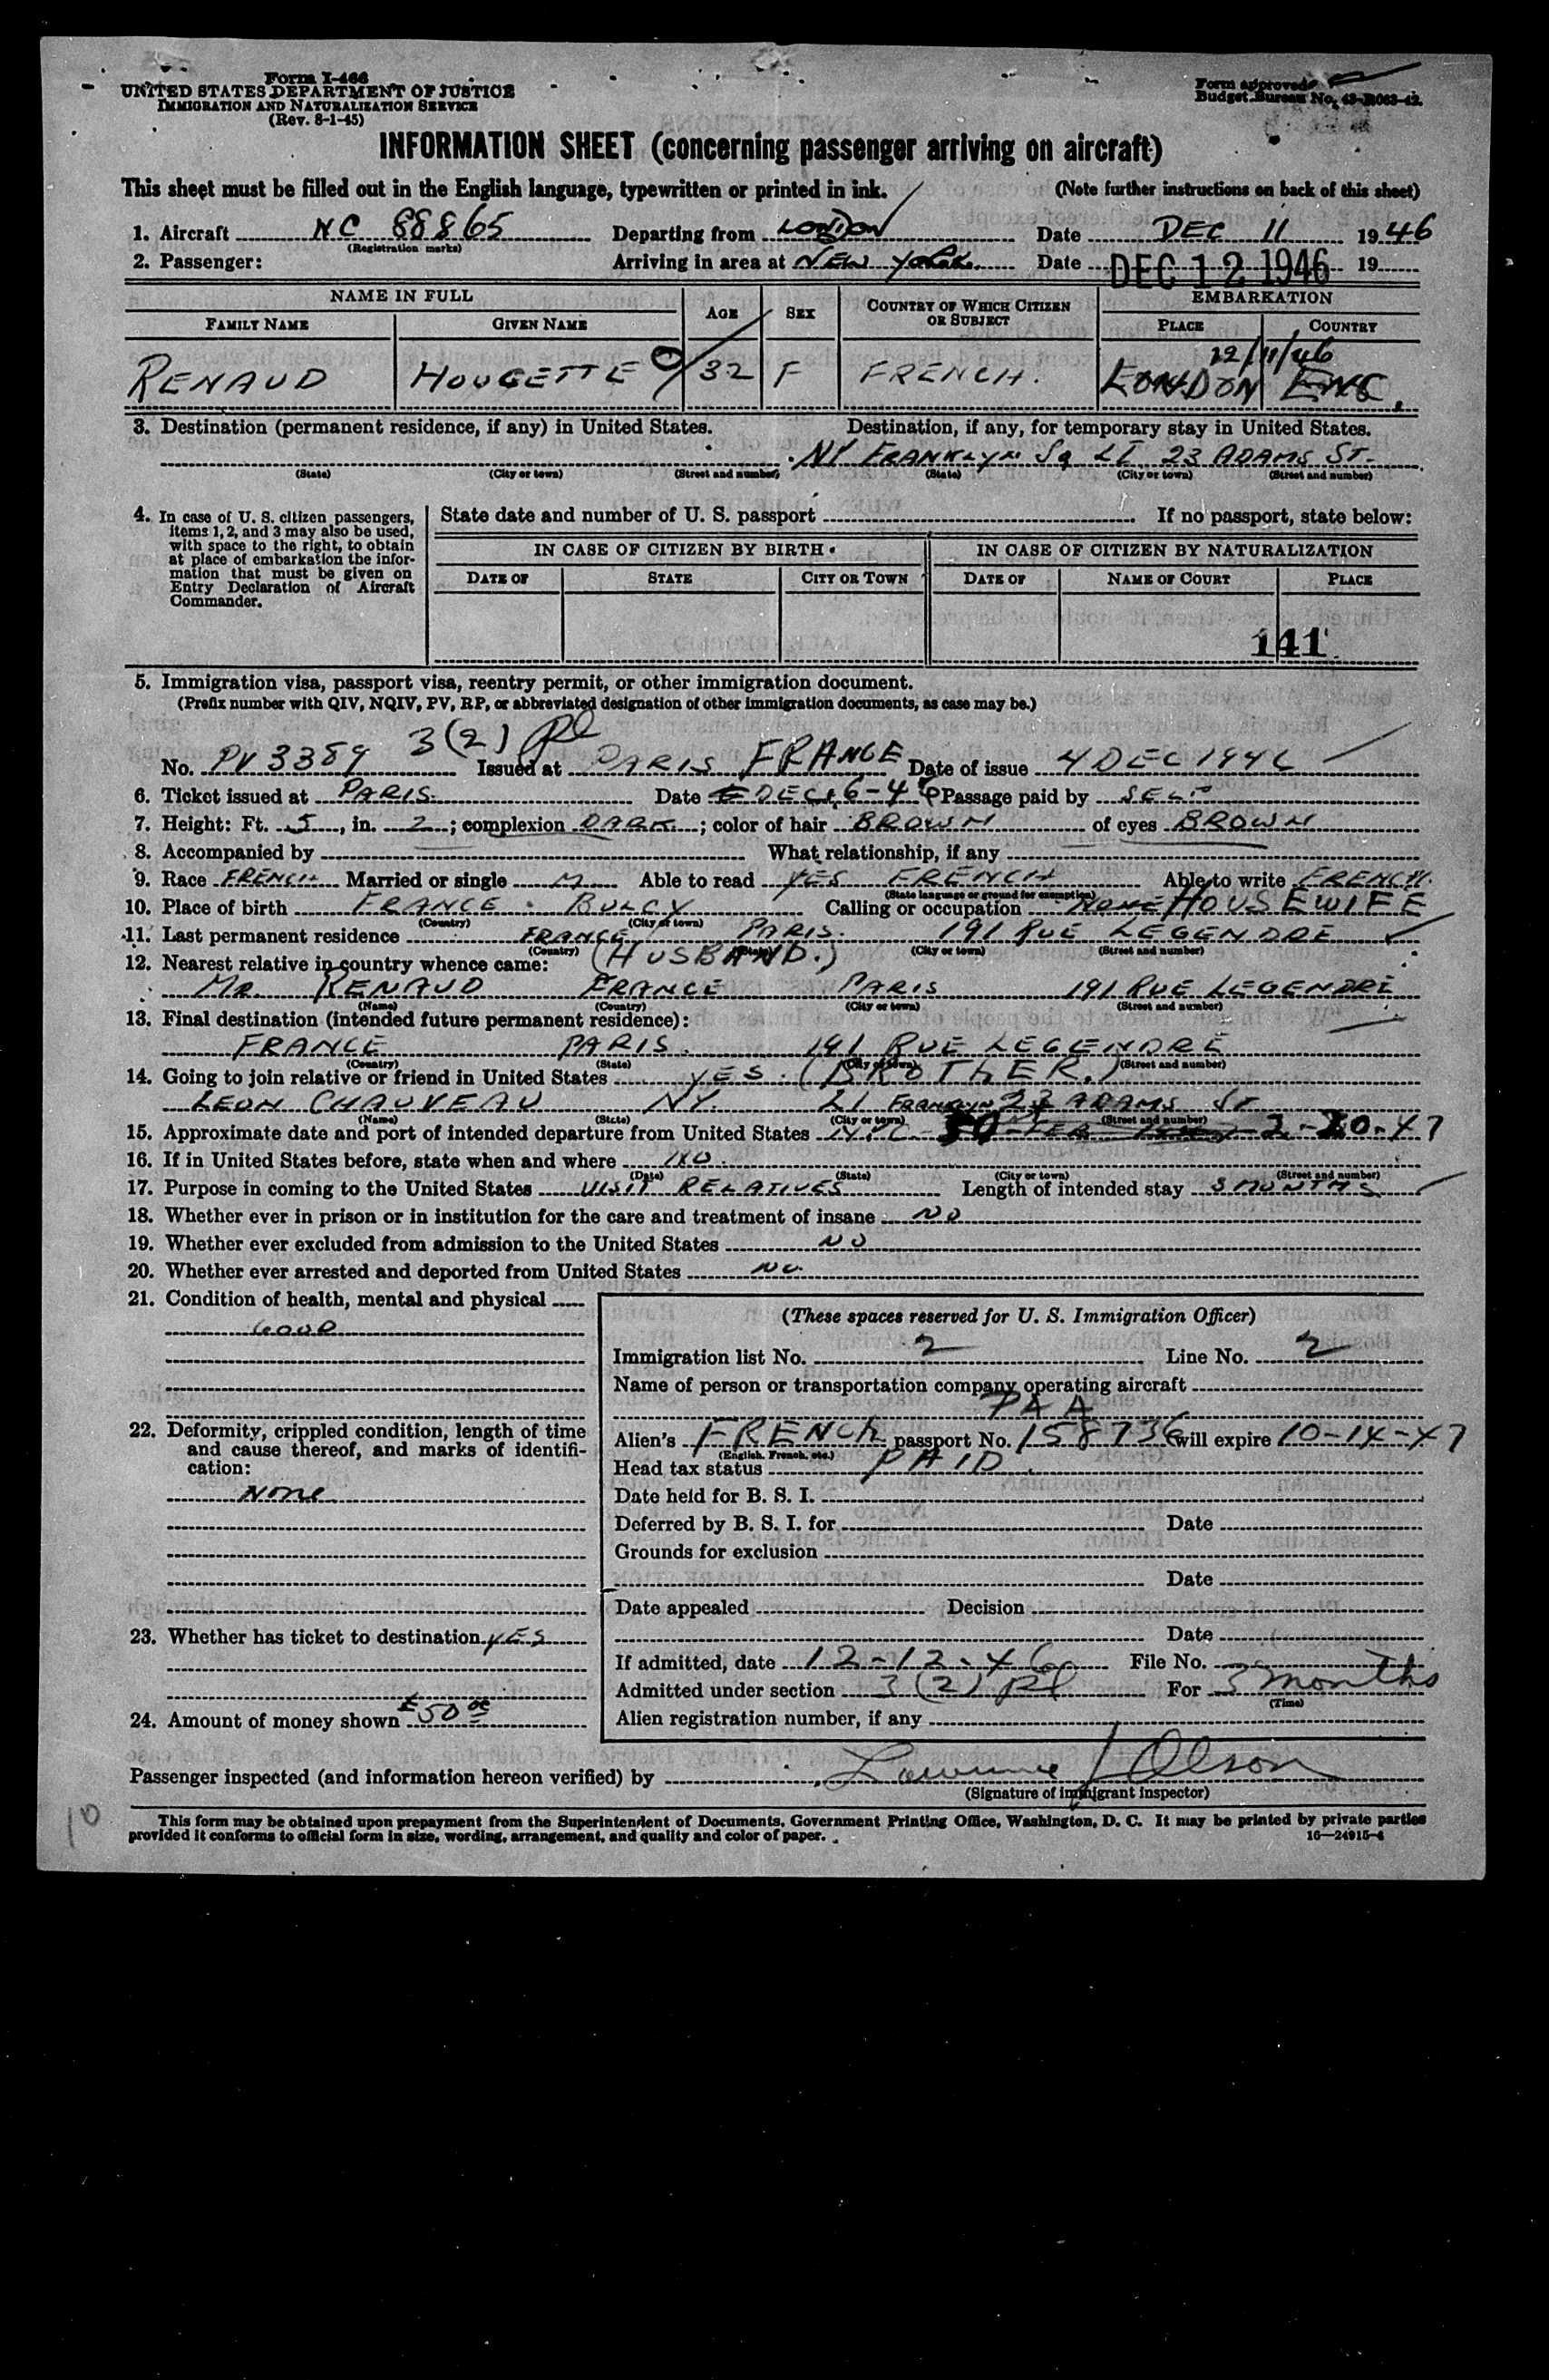 Form I-466
UNITED STATES DEPARTMENT OF JUSTICE
IMMIGRATION AND NATURALIZATION SERVICE
(Rev. 8-1-45)
Form approved
Budget Bureau No. 43-R063-42.
INFORMATION SHEET (concerning passenger arriving on aircraft)
This sheet must be filled out in the English language, typewritten or printed in ink. (Note further instructions on back of this sheet)
1. Aircraft NC 88865 Departing from LONDON Date DEC 11 1946
(Registration marks)
2. Passenger: Arriving in area at NEW YORK Date DEC 12 1946 19
NAME IN FULL AGE SEX COUNTRY OF WHICH CITIZEN OR SUBJECT EMBARKATION
FAMILY NAME GIVEN NAME PLACE COUNTRY
12/11/46
RENAUD HOUGETTE 32 F FRENCH. LONDON ENG.
3. Destination (permanent residence, if any) in United States. Destination, if any, for temporary stay in United States.
NY FRANKLYN Sq LI 23 ADAMS ST.
(State) (City or town) (Street and number) (State) (City or town) (Street and number)
4. In case of U. S. citizen passengers, items 1, 2, and 3 may also be used, with space to the right, to obtain at place of embarkation the information that must be given on Entry Declaration of Aircraft Commander.
State date and number of U. S. passport If no passport, state below:
IN CASE OF CITIZEN BY BIRTH IN CASE OF CITIZEN BY NATURALIZATION
DATE OF STATE CITY OR TOWN DATE OF NAME OF COURT PLACE
141
5. Immigration visa, passport visa, reentry permit, or other immigration document.
(Prefix number with QIV, NQIV, PV, RP, or abbreviated designation of other immigration documents, as case may be.)
3(2)
No. PV 3389 Issued at PARIS FRANCE Date of issue 4 DEC 1946
6. Ticket issued at PARIS. Date DEC. 6-46 Passage paid by SELF
7. Height: Ft. 5, in. 2; complexion DARK; color of hair BROWN of eyes BROWN
8. Accompanied by What relationship, if any
9. Race FRENCH Married or single M Able to read YES FRENCH Able to write FRENCH.
(State language or ground for exemption)
10. Place of birth FRANCE. BULCY Calling or occupation NONE HOUSEWIFE
(Country) (City or town)
11. Last permanent residence FRANCE PARIS. 191 RUE LEGENDRE
(Country) (State) (City or town) (Street and number)
12. Nearest relative in country whence came: (HUSBAND.)
MR. RENAUD FRANCE PARIS 191 RUE LEGENDRE
(Name) (Country) (City or town) (Street and number)
13. Final destination (intended future permanent residence):
FRANCE PARIS. 191 RUE LEGENDRE
(Country) (State) (City or town) (Street and number)
14. Going to join relative or friend in United States YES. (BROTHER.)
LEON CHAUVEAU NY. LI FRANKLIN 23 ADAMS ST
(Name) (State) (City or town) (Street and number)
15. Approximate date and port of intended departure from United States 2-20-47
16. If in United States before, state when and where NO.
(Date) (State) (City or town) (Street and number)
17. Purpose in coming to the United States VISIT RELATIVES Length of intended stay 3 MONTHS
18. Whether ever in prison or in institution for the care and treatment of insane NO
19. Whether ever excluded from admission to the United States NO
20. Whether ever arrested and deported from United States NO
21. Condition of health, mental and physical
GOOD
22. Deformity, crippled condition, length of time and cause thereof, and marks of identification:
None
23. Whether has ticket to destination YES
24. Amount of money shown £50 00
(These spaces reserved for U. S. Immigration Officer)
Immigration list No. 2 Line No. 2
Name of person or transportation company operating aircraft
PAA
Alien's FRENCH passport No. 158736 will expire 10-14-47
(English, French, etc.)
Head tax status PAID
Date held for B. S. I.
Deferred by B. S. I. for Date
Grounds for exclusion
Date
Date appealed Decision
Date
If admitted, date 12-12-46 File No.
Admitted under section 3(2) For 3 months
(Time)
Alien registration number, if any
Passenger inspected (and information hereon verified) by Lawrence J Olson
(Signature of immigrant inspector)
10
This form may be obtained upon prepayment from the Superintendent of Documents, Government Printing Office, Washington, D. C. It may be printed by private parties
provided it conforms to official form in size, wording, arrangement, and quality and color of paper. 16—24915-4